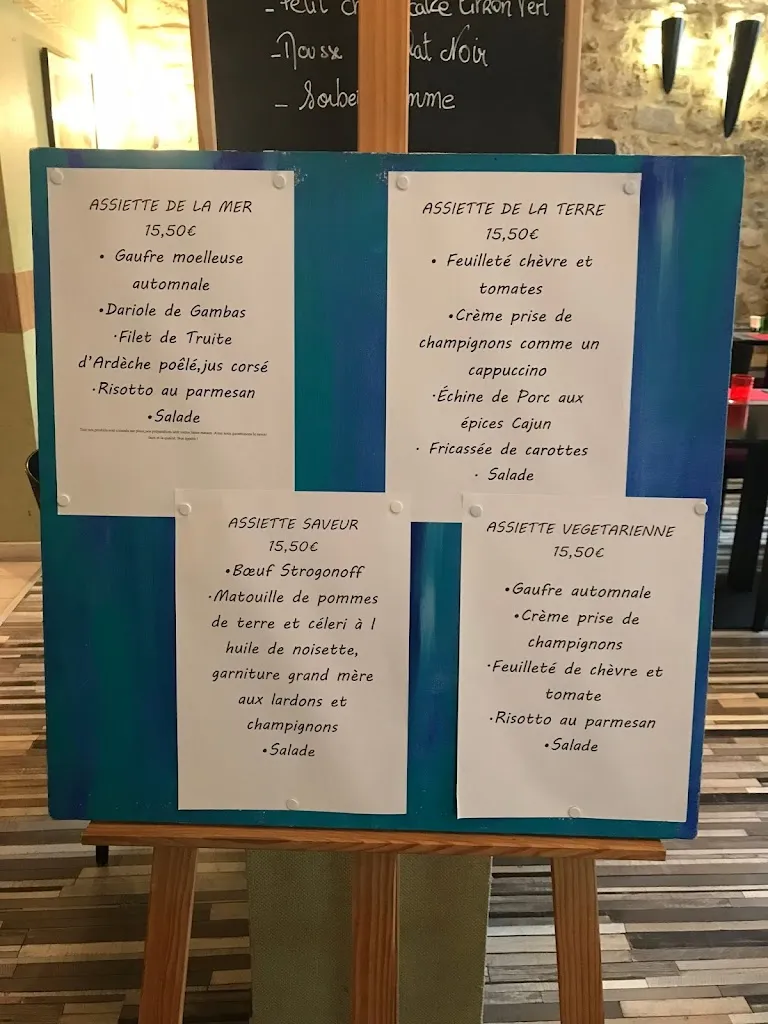 - Petit ch cake Citron Vert
- Mousse lat Noir
- Sorbe mme
ASSIETTE DE LA MER
15,50€
• Gaufre moelleuse
automnale
•Dariole de Gambas
·Filet de Truite
d'Ardèche poêlé,jus corsé
·Risotto au parmesan
•Salade
ASSIETTE DE LA TERRE
15,50€
• Feuilleté chèvre et
tomates
•Crème prise de
champignons comme un
cappuccino
·Échine de Porc aux
épices Cajun
· Fricassée de carottes
· Salade
ASSIETTE SAVEUR
15,50€
•Bœuf Strogonoff
·Matouille de pommes
de terre et céleri à l
huile de noisette,
garniture grand mère
aux lardons et
champignons
•Salade
ASSIETTE VEGETARIENNE
15,50€
•Gaufre automnale
•Crème prise de
champignons
·Feuilleté de chèvre et
tomate
·Risotto au parmesan
•Salade